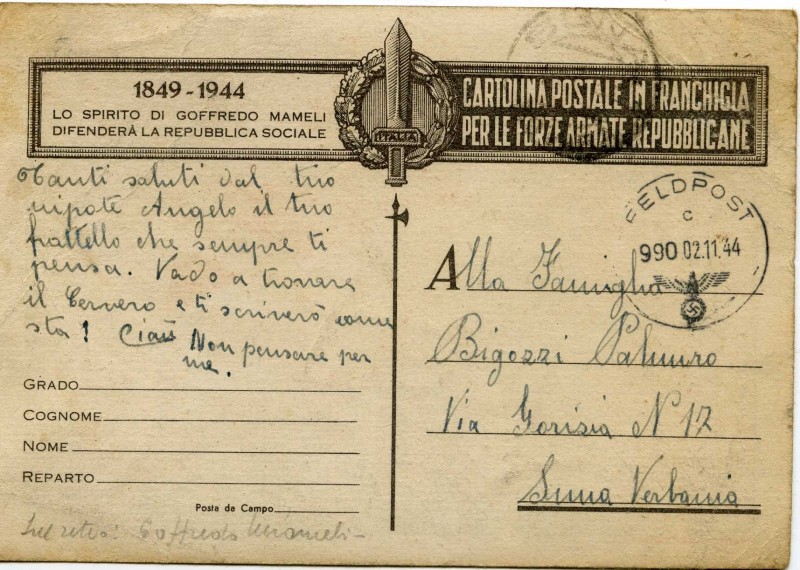 1849 - 1944
LO SPIRITO DI GOFFREDO MAMELI
DIFENDERÀ LA REPUBBLICA SOCIALE
ITALIA
CARTOLINA POSTALE IN FRANCHIGIA
PER LE FORZE ARMATE REPUBBLICANE
Tanti saluti dal tuo
nipote Angelo il tuo
frattello che sempre ti
pensa. Vado a trovare
il Cervero e ti scriverò come
sta! Ciau Non pensare per
me.
FELDPOST
c
990 02.11.44
Alla Famiglia
Bigozzi Palmiro
Via Gorisia N 17
Suna Verbania
GRADO
COGNOME
NOME
REPARTO
Posta da Campo
Sul retro: Goffredo Mameli-